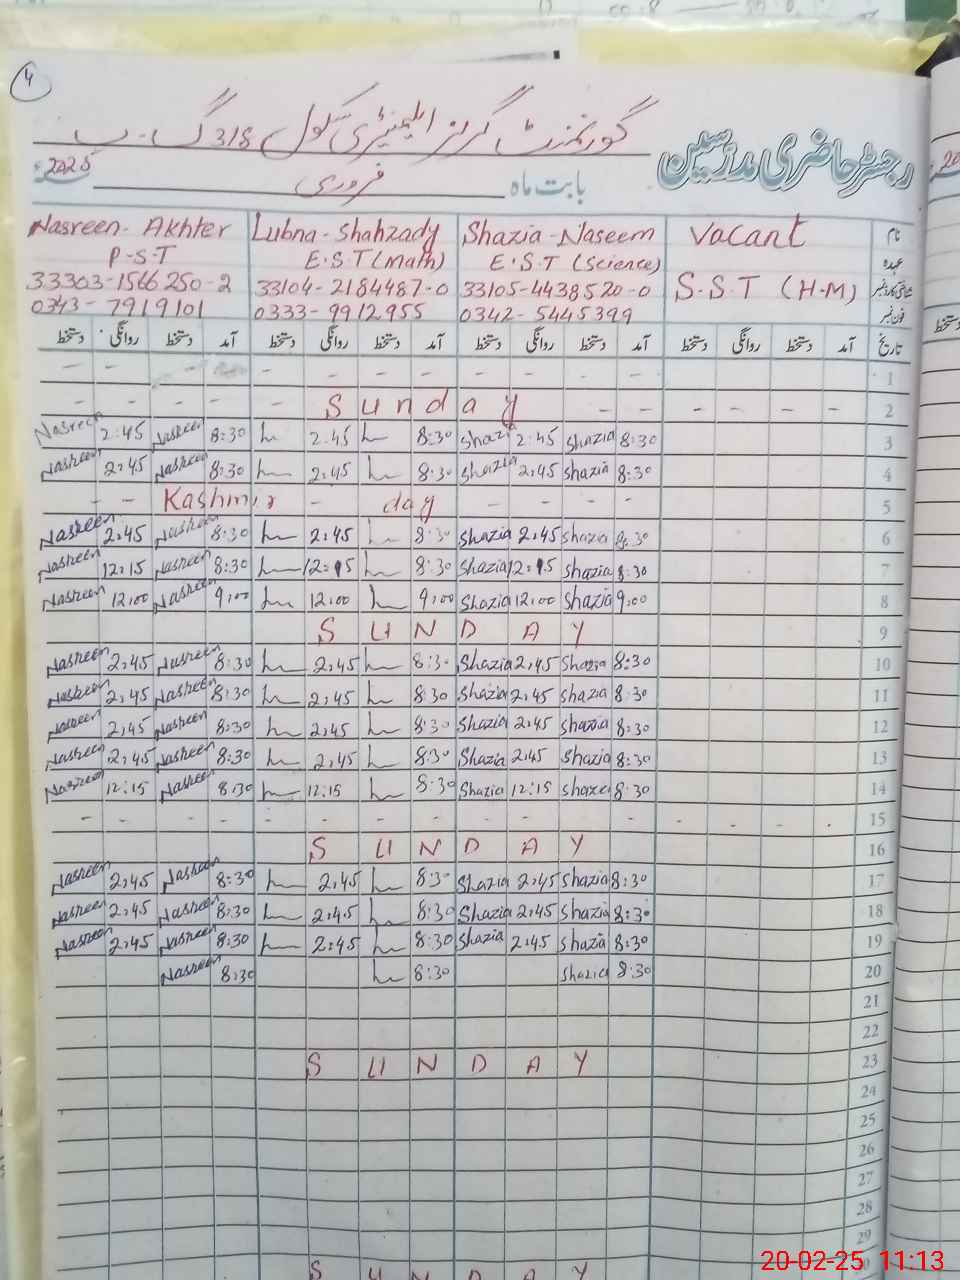 4
رجسٹر حاضری مدرسین
گورنمنٹ گرلز ایلیمنٹری سکول 318 گ-ب
بابت ماہ فروری 2025
نام
عہدہ
شناختی کارڈ نمبر
فون نمبر
Vacant
S.S.T (H-M)
Shazia-Naseem
E.S.T (Science)
33105-4438520-0
0342-5445399
Lubna-Shahzady
E.S.T (Math)
33104-2184487-0
0333-9912955
Nasreen-Akhter
P-S-T
33303-1566250-2
0343-7919101
دستخط روانگی دستخط آمد دستخط روانگی دستخط آمد دستخط روانگی دستخط آمد دستخط روانگی دستخط آمد تاریخ
- - - - - - - - - 1
- - - - - Sunday - - - - - - 2
Nasreen 2:45 Nasreen 8:30 2:45 8:30 Shazia 2:45 Shazia 8:30 3
Nasreen 2:45 Nasreen 8:30 2:45 8:30 Shazia 2:45 Shazia 8:30 4
- - Kashmir - day - - - - 5
Nasreen 2:45 Nasreen 8:30 2:45 8:30 Shazia 2:45 Shazia 8:30 6
Nasreen 12:15 Nasreen 8:30 12:15 8:30 Shazia 12:15 Shazia 8:30 7
Nasreen 12:00 Nasreen 9:00 12:00 9:00 Shazia 12:00 Shazia 9:00 8
SUNDAY 9
Nasreen 2:45 Nasreen 8:30 2:45 8:30 Shazia 2:45 Shazia 8:30 10
Nasreen 2:45 Nasreen 8:30 2:45 8:30 Shazia 2:45 Shazia 8:30 11
Nasreen 2:45 Nasreen 8:30 2:45 8:30 Shazia 2:45 Shazia 8:30 12
Nasreen 2:45 Nasreen 8:30 2:45 8:30 Shazia 2:45 Shazia 8:30 13
Nasreen 12:15 Nasreen 8:30 12:15 8:30 Shazia 12:15 Shazia 8:30 14
- - - - - - - - - - - - - 15
SUNDAY 16
Nasreen 2:45 Nasreen 8:30 2:45 8:30 Shazia 2:45 Shazia 8:30 17
Nasreen 2:45 Nasreen 8:30 2:45 8:30 Shazia 2:45 Shazia 8:30 18
Nasreen 2:45 Nasreen 8:30 2:45 8:30 Shazia 2:45 Shazia 8:30 19
Nasreen 8:30 8:30 Shazia 8:30 20
21
22
SUNDAY 23
24
25
26
27
28
29
SUNDAY
20-02-25 11:13